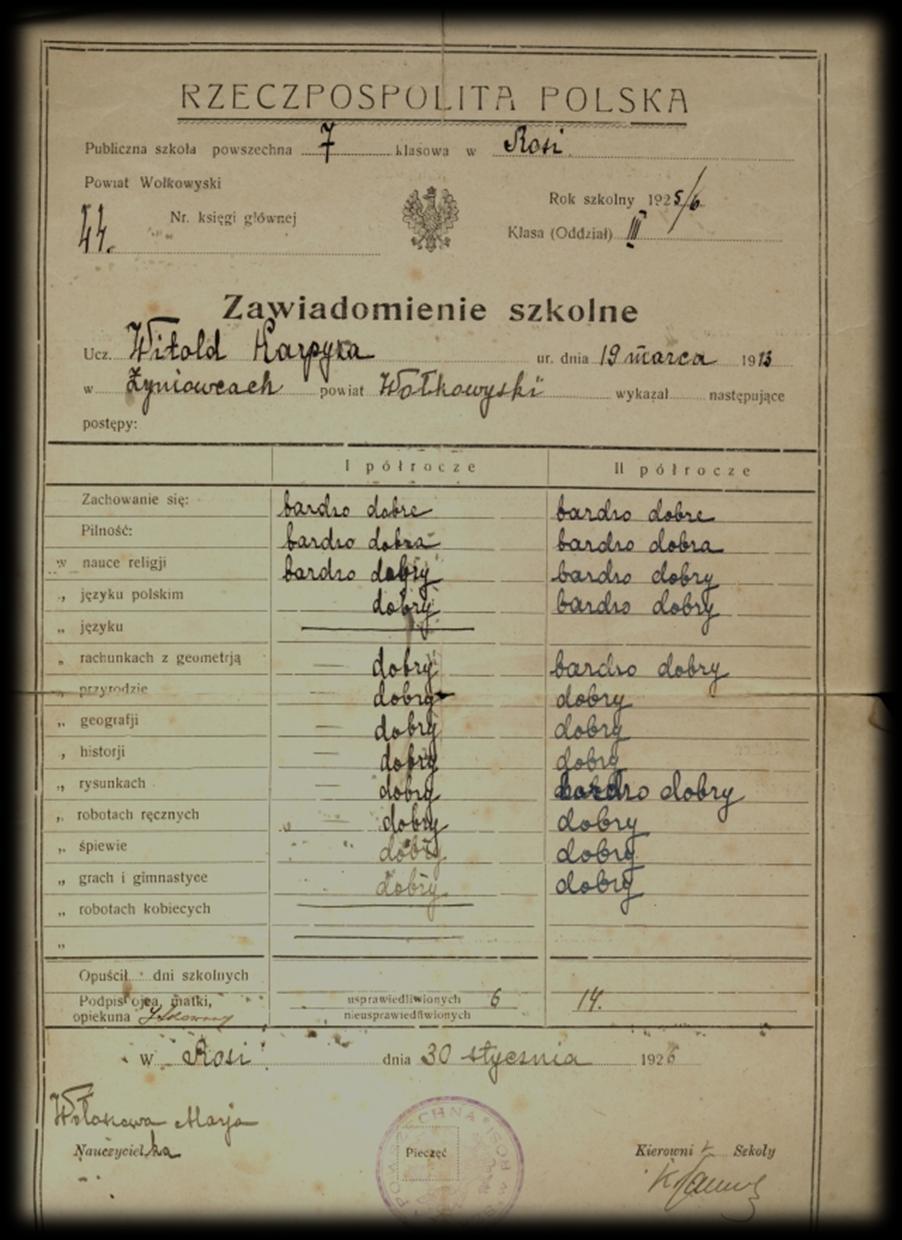 RZECZPOSPOLITA POLSKA
Publiczna szkoła powszechna 7 klasowa w Rosi
Powiat Wołkowyski
Rok szkolny 1925/6
44. Nr. księgi głównej
Klasa (Oddział) III
Zawiadomienie szkolne
Ucz. Witold Karpyza ur. dnia 19 marca 1913
w Żyniowcach powiat Wołkowyski wykazał następujące
postępy:
I półrocze II półrocze
Zachowanie się: bardzo dobre bardzo dobre
Pilność: bardzo dobra bardzo dobra
w nauce religji bardzo dobry bardzo dobry
„ języku polskim dobry bardzo dobry
„ języku
„ rachunkach z geometrją dobry bardzo dobry
„ przyrodzie dobry dobry
„ geografji dobry dobry
„ historji dobry dobry
„ rysunkach dobry bardzo dobry
„ robotach ręcznych dobry dobry
„ śpiewie dobry dobry
„ grach i gimnastyce dobry dobry
„ robotach kobiecych
„
Opuścił dni szkolnych
Podpis ojca, matki, usprawiedliwionych 6 14.
opiekuna nieusprawiedliwionych
w Rosi dnia 30 stycznia 1926
Marja
Nauczycielka Pieczęć Kierownik Szkoły
POWSZECHNA